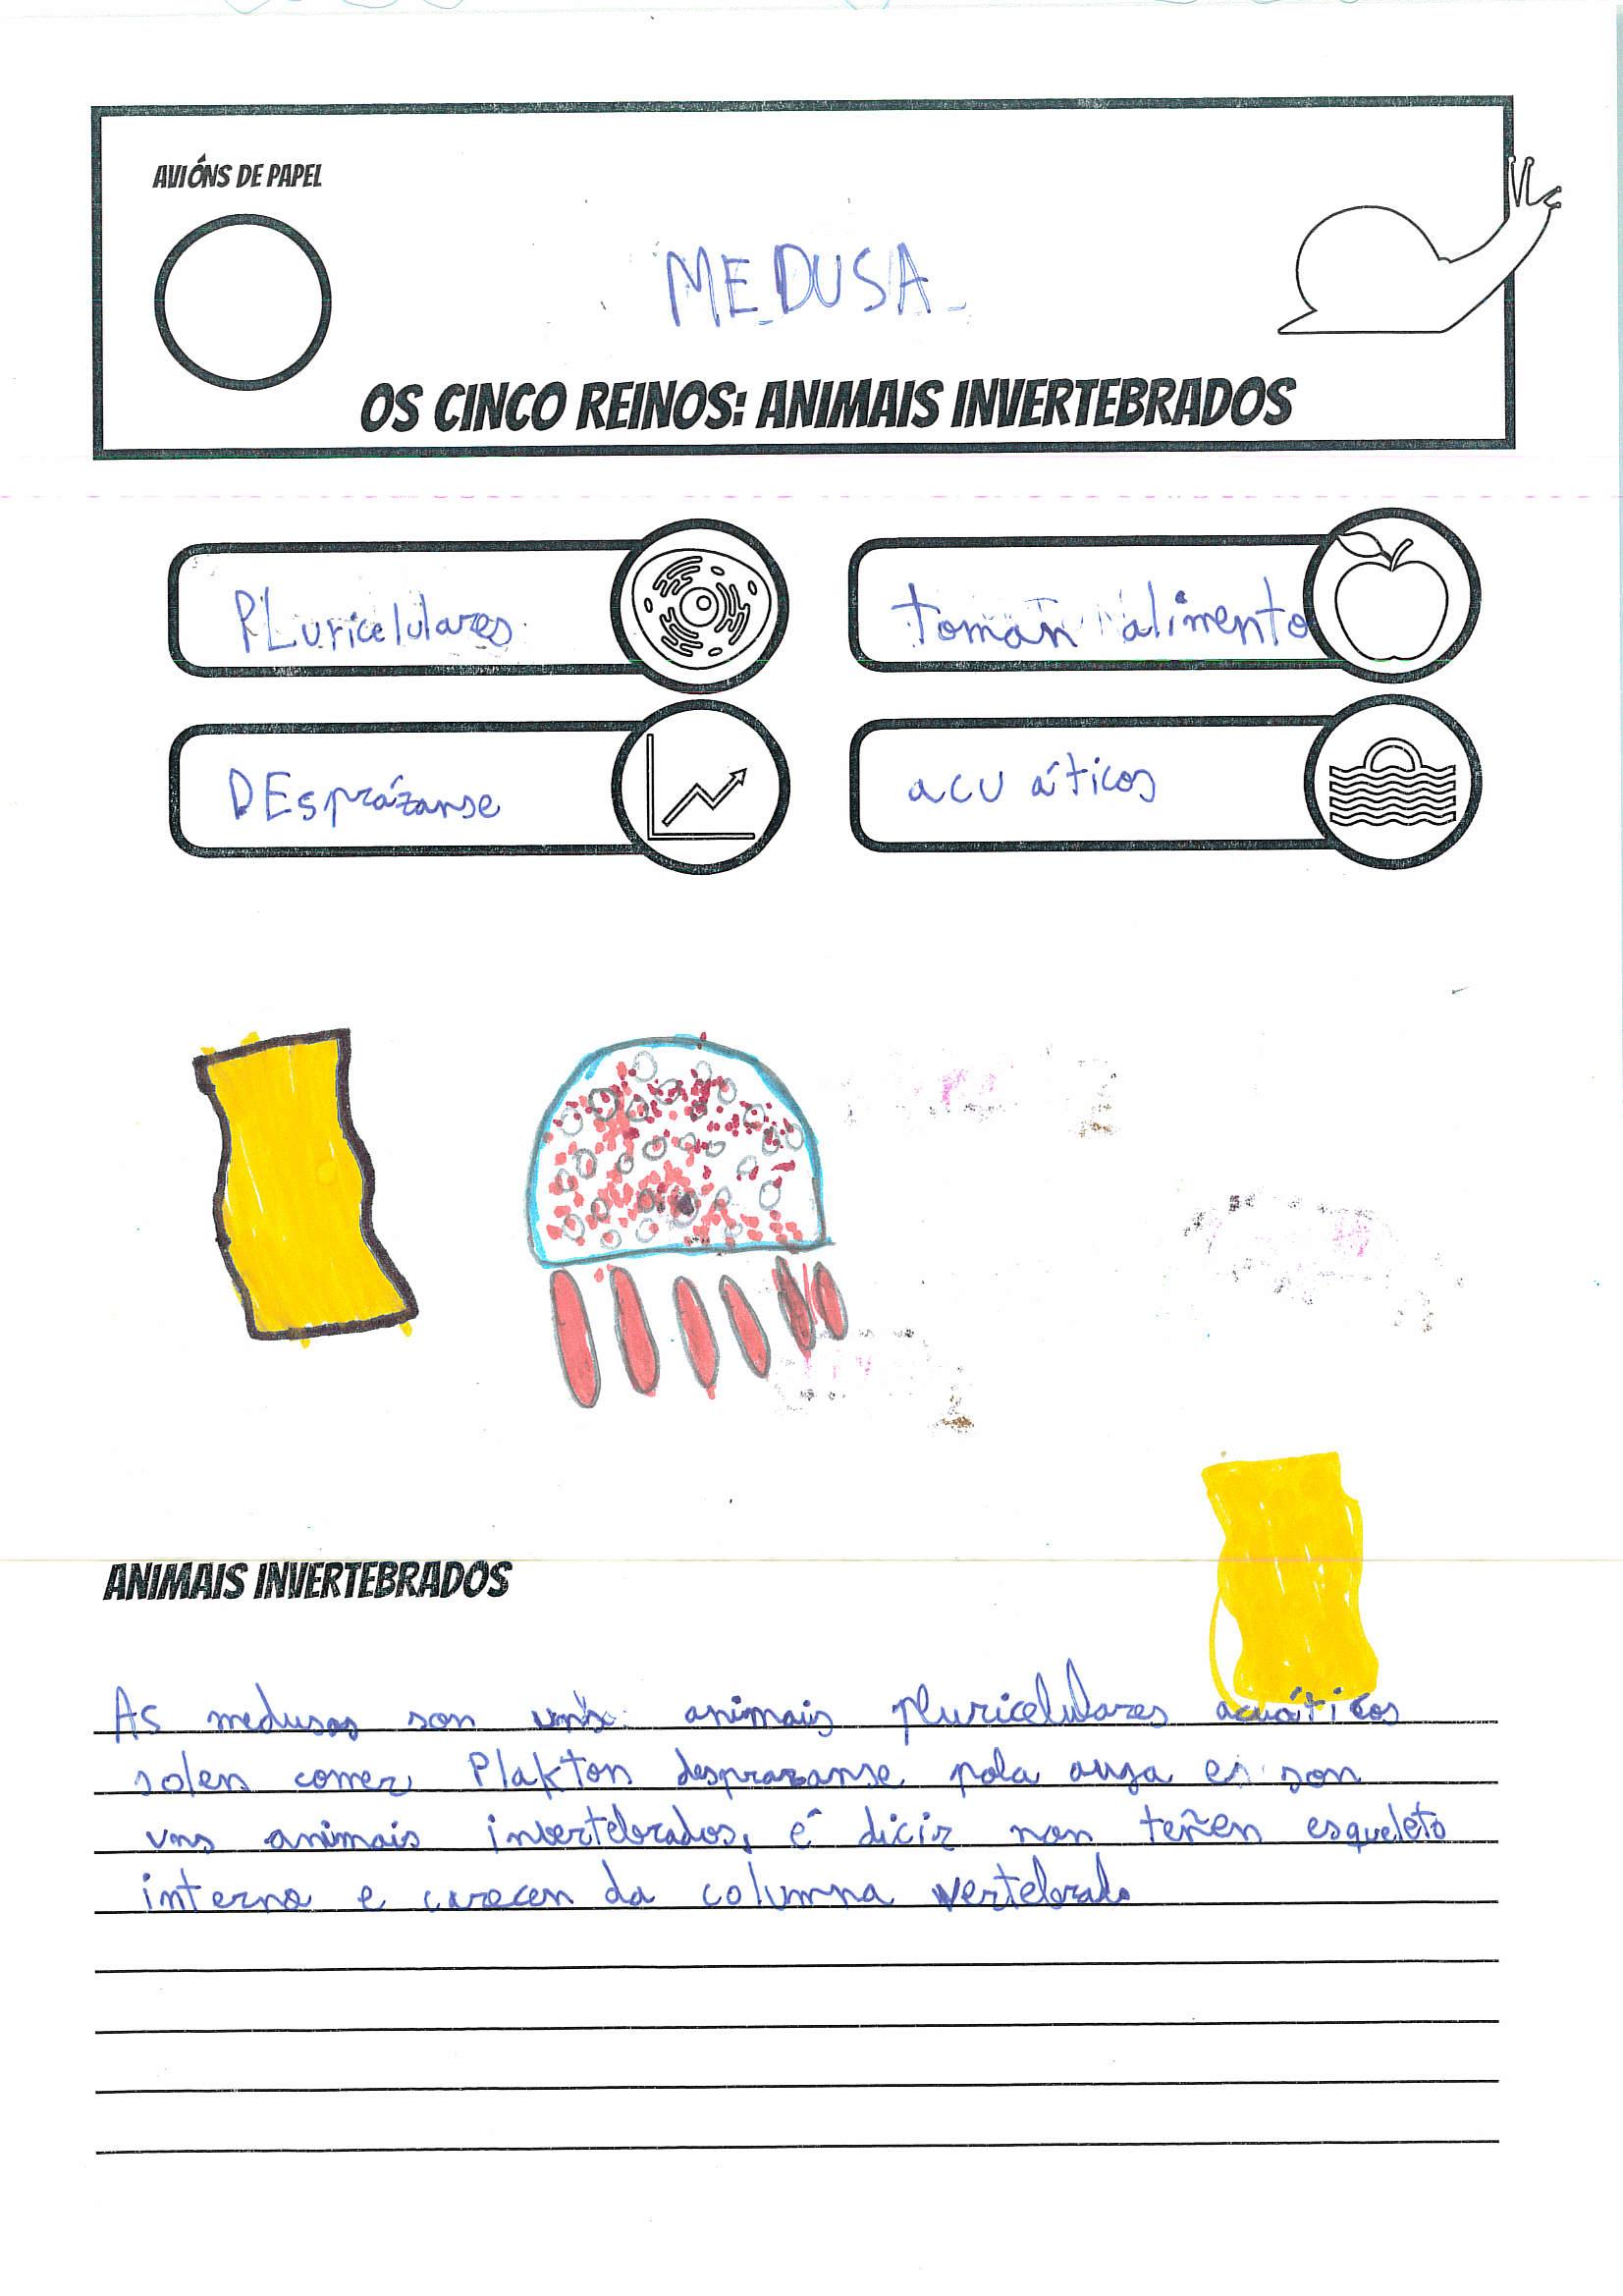 AVIÓNS DE PAPEL
MEDUSA
OS CINCO REINOS: ANIMAIS INVERTEBRADOS
PLuricelulares
toman alimento
DEsprázanse
acuáticos
ANIMAIS INVERTEBRADOS
As medusas son uns animais pluricelulares acuáticos
solen comer Plakton desprazanse pola auga e son
uns animais invertebrados, é dicir non teñen esqueleto
interno e carecen da columna vertebral